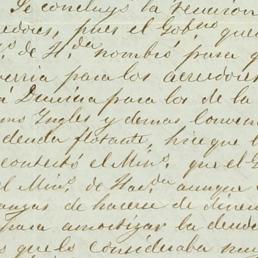 Se concluyó la reunion
edores, pues el Gob.no que
o. de H.da nombró para q
erria para los acreedores
á Durina para los de la
ms Ingles y demas conven
deuda flotante, hice que l
contestó el Min.o, que el G
l Min.o de Hac.da aunque
anzas de hacerse de diner
para amortizar la deuda
s que lo consideraba muy